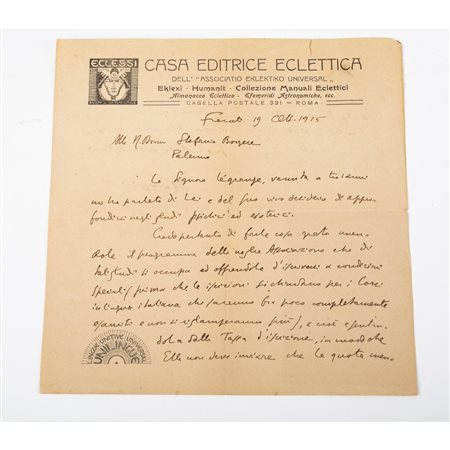 ECLESSI
CASA EDITRICE ECLETTICA
DELL' "ASSOCIATIO EKLEKTIKO UNIVERSAL"
Eklexi - Humanit - Collezione Manuali Eclettici
Almanacco Eclettico - Efemeridi Astronomiche, ecc.
CASELLA POSTALE 331 - ROMA
19 Ott. 1915
Alla N. Donna Stefania
Palermo
La Signora Légrange, venuta a
mi ha parlato di Lei e del suo vivo desiderio di appro-
fondirsi negli studi psichici ed esoterici.
Credo pertanto di farle cosa grata man-
dole il programma della nostra Associazione che di
tali studi si occupa ed offrendole d'iscriversi a condizioni
speciali prima che le iscrizioni si chiudano per i Corsi
in lingua italiana che saranno fra poco completamente
esauriti e non si ristamperanno più, e cioè esentan-
dola dalla Tassa d'iscrizione, in modo che
Ella non deve inviare che la quota men-
LINGUE UNITIVE UNIVERSAL
UNILINGUE